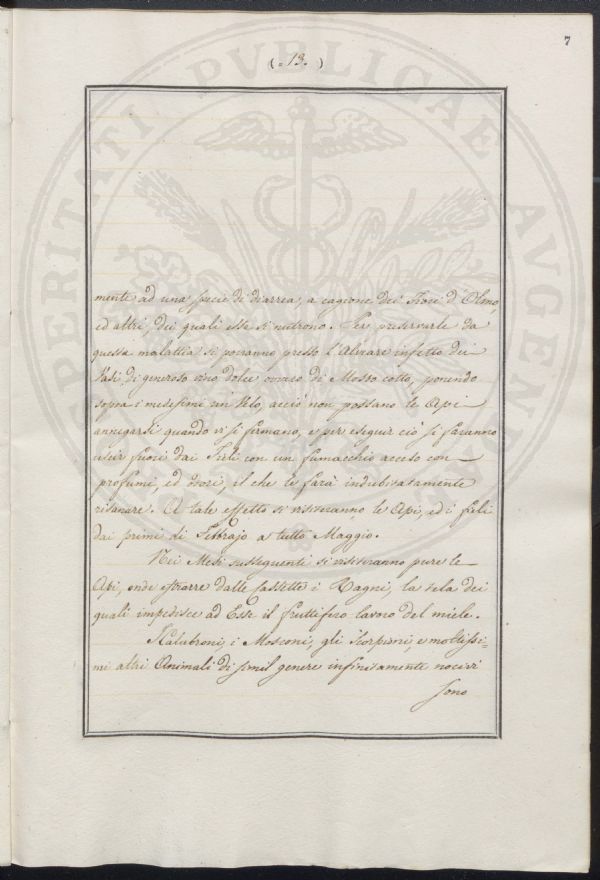 7
(. 13. )
mente ad una specie di diarrea, a cagione dei Fiori d'Olmo,
ed altri, dei quali esse si nutrono. Per preservarle da
questa malattia si porranno presso l'Alveare infetto dei
Vasi di generoso vino dolce ovvero di Mosto cotto, ponendo
sopra i medesimi un Velo, acciò non possano le Api
annegarsi quando vi si fermano, e per eseguir ciò si faranno
uscir fuori dai Fiali con un fumacchio acceso con
profumi, ed odori, il che le farà indubitatamente
risanare. A tale effetto si visiteranno le Api, ed i fiali
dai primi di Febrajo a tutto Maggio.
Nei Mesi susseguenti si visiteranno pure le
Api, onde estrarre dalle cassette i Ragni, la tela dei
quali impedisce ad Esse il fruttifero lavoro del miele.
I Calabroni, i Mosconi, gli Scorpioni, e moltissi=
mi altri Animali di simil genere infinitamente nocivi
sono
PROSPERITATI PVBLICAE AVGENDAE